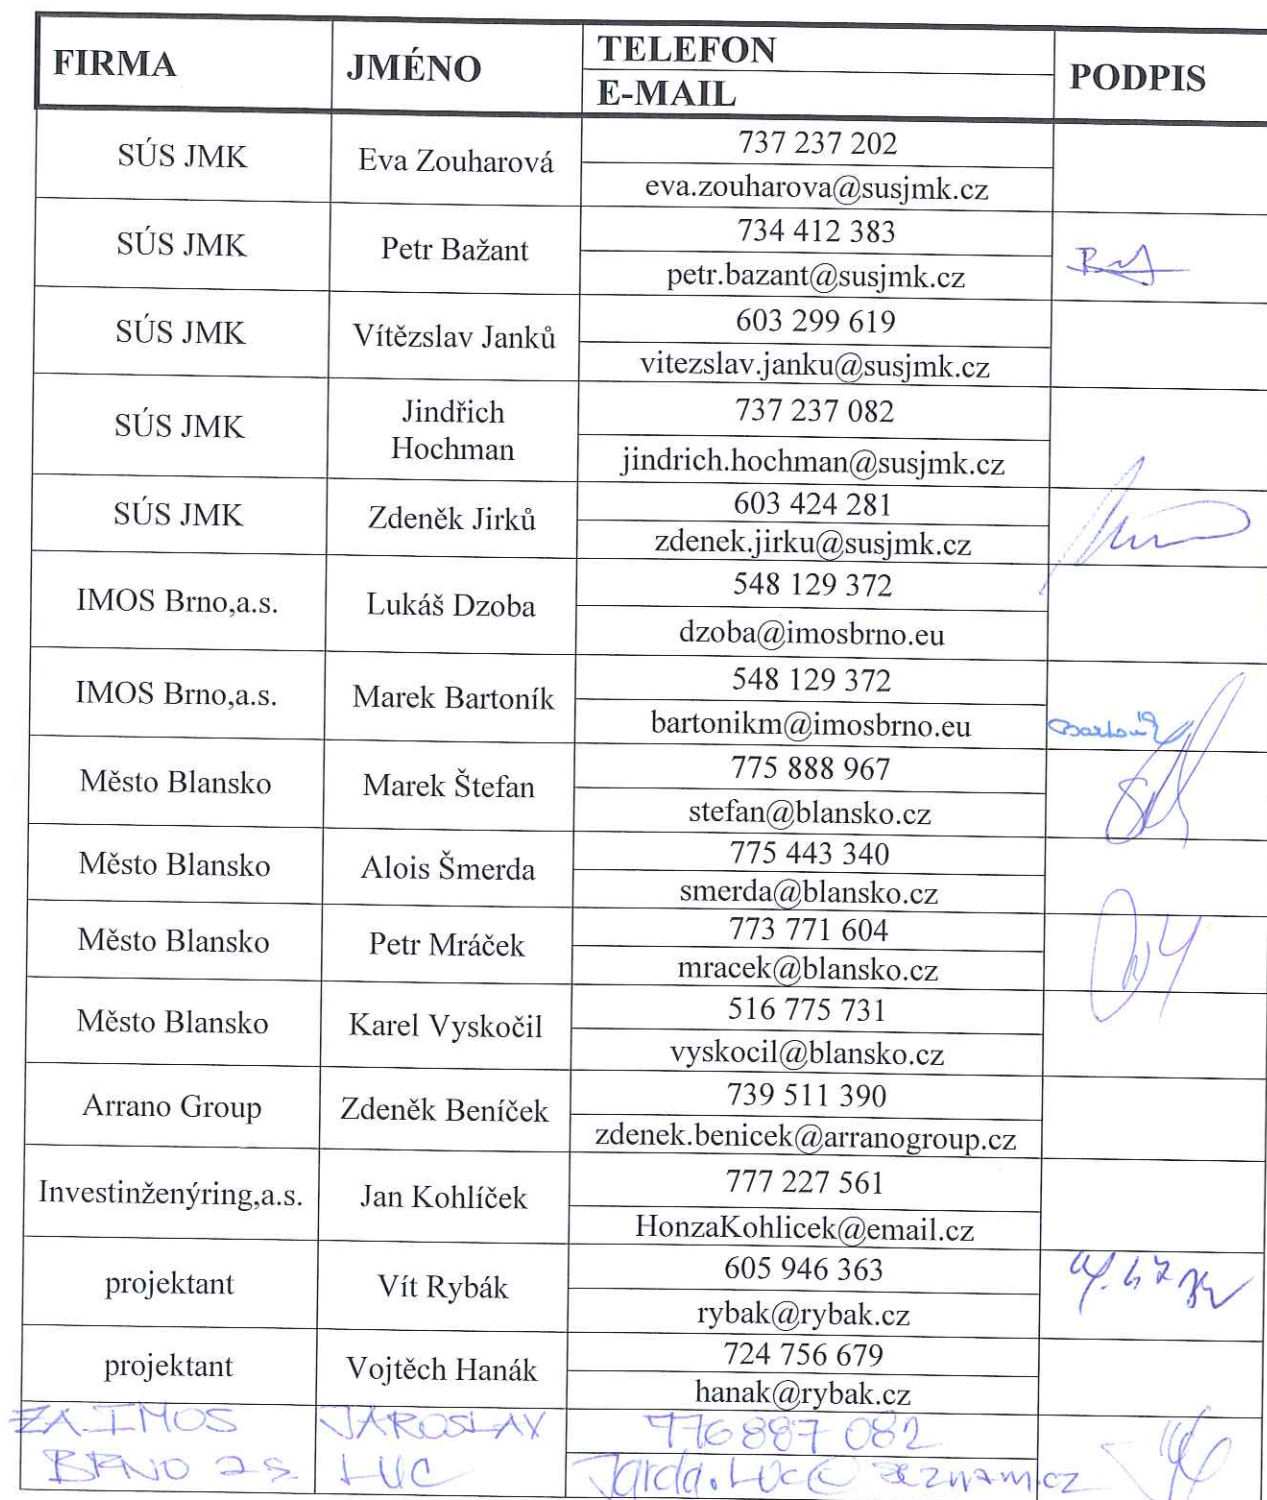 FIRMA JMÉNO TELEFON PODPIS
E-MAIL
SÚS JMK Eva Zouharová 737 237 202
eva.zouharova@susjmk.cz
SÚS JMK Petr Bažant 734 412 383
petr.bazant@susjmk.cz
SÚS JMK Vítězslav Janků 603 299 619
vitezslav.janku@susjmk.cz
SÚS JMK Jindřich 737 237 082
Hochman jindrich.hochman@susjmk.cz
SÚS JMK Zdeněk Jirků 603 424 281
zdenek.jirku@susjmk.cz
IMOS Brno,a.s. Lukáš Dzoba 548 129 372
dzoba@imosbrno.eu
IMOS Brno,a.s. Marek Bartoník 548 129 372
bartonikm@imosbrno.eu
Město Blansko Marek Štefan 775 888 967
stefan@blansko.cz
Město Blansko Alois Šmerda 775 443 340
smerda@blansko.cz
Město Blansko Petr Mráček 773 771 604
mracek@blansko.cz
Město Blansko Karel Vyskočil 516 775 731
vyskocil@blansko.cz
Arrano Group Zdeněk Beníček 739 511 390
zdenek.benicek@arranogroup.cz
Investinženýring,a.s. Jan Kohlíček 777 227 561
HonzaKohlicek@email.cz
projektant Vít Rybák 605 946 363
rybak@rybak.cz
projektant Vojtěch Hanák 724 756 679
hanak@rybak.cz
ZA IMOS JAROSLAV 776 887 082
BRNO a.s. LUC Jarda.Luc@seznam.cz